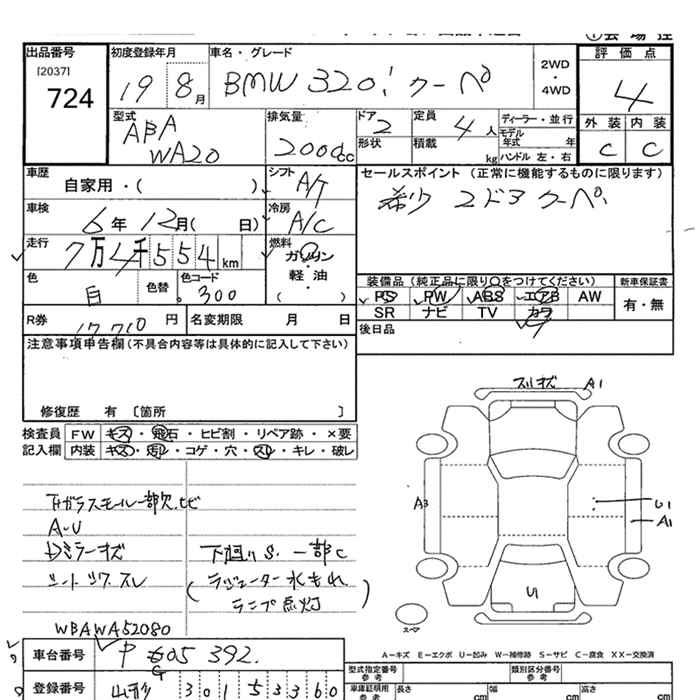 出品番号 初度登録年月 車名・グレード 評価点
[2037]
724
19 8月 BMW 320i クーペ 2WD・4WD 4
型式 ABA WA20 排気量 2000cc ドア 2 定員 4人 ディーラー・並行
形状 積載 kg モデル年式 年 ハンドル 左・右
外装 内装
C C
車歴 自家用・( ) シフト A/T セールスポイント (正常に機能するものに限ります)
希少 2ドアクーペ
車検 6年12月( 日) 冷房 A/C
走行 7万4千554km 燃料 ガソリン 軽・油 ( ・ )
色 白 色替 色コード 300
装備品(純正品に限り○をつけてください) 新車保証書
PS PW ABS エアB AW 有・無
SR ナビ TV カワ
R券 17710円 名変期限 月 日 後日品
注意事項申告欄(不具合内容等は具体的に記入して下さい)
修復歴 有 〔箇所 〕
検査員 FW キズ・飛石・ヒビ割・リペア跡・×要
記入欄 内装 キズ・汚レ・コゲ・穴・スレ・キレ・破レ
スリキズ A1
Fガラスモール一部欠.ヒビ
A-U
Dミラーキズ 下廻りS.一部C
シートシワ.スレ (ラジエーター水もれ
ランプ点灯
A3
U1
A1
U
スペア
WBAWA52080
車台番号 P G05392.
A-キズ E-エクボ U-凹み W-補修跡 S-サビ C-腐食 XX-交換済
登録番号 山形 301 53360
型式指定番号 参考 類別区分番号 参考
車庫証明用 参考 長さ cm 幅 cm 高さ cm